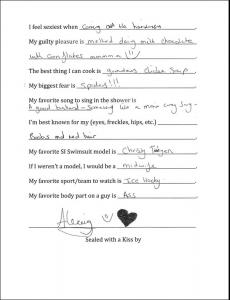 I feel sexiest when coming out the hairdressers
My guilty pleasure is melted dairy milk chocolate
with Cornflakes mmmmm
The best thing I can cook is grandmas chicken soup
My biggest fear is spiders!!!
My favorite song to sing in the shower is
A good husband - Someway like a
I'm best known for my (eyes, freckles, hips, etc.)
Boobs and red hair
My favorite SI Swimsuit model is Christy Teigen
If I weren't a model, I would be a midwife
My favorite sport/team to watch is Ice Hocky
My favorite body part on a guy is Ass
Sealed with a Kiss by